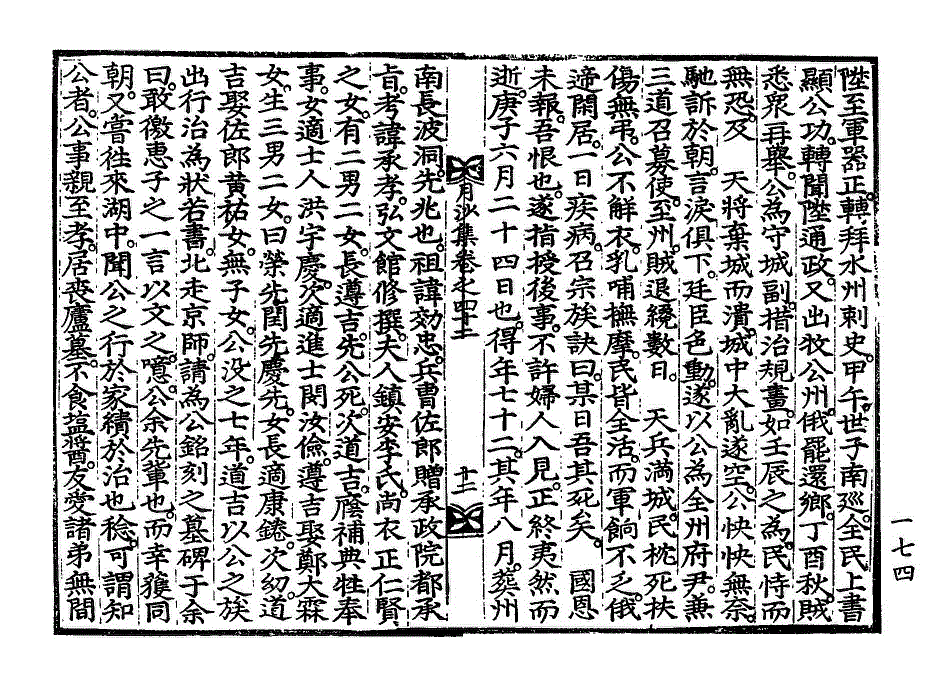 陞至軍器正。轉拜水州刺史。甲午。世子南巡。全民上書
顯公功。轉聞陞通政。又出牧公州。俄罷還鄕。丁酉秋。賊
悉衆再擧。公爲守城副。措治規畫。如壬辰之爲。民恃而
無恐。及　天將棄城而潰。城中大亂遂空。公怏怏無奈。
馳訴於朝。言淚俱下。廷臣色動。遂以公爲全州府尹。兼
三道召募使。至州。賊退纔數日。　天兵滿城。民枕死扶
傷無弔。公不解衣。乳哺撫摩。民皆全活。而軍餉不乏。俄
遞閑居。一日疾病。召宗族訣曰。某日吾其死矣。　國恩
未報。吾恨也。遂指授後事。不許婦人入見。正終夷然而
逝。庚子六月二十四日也。得年七十二。其年八月。葬州
月沙集卷之四十二
十二
南長波洞。先兆也。祖諱効忠。兵曹佐郞贈承政院都承
旨。考諱承孝。弘文館修撰。夫人鎭安李氏。尙衣正仁賢
之女。有二男二女。長遵吉。先公死。次道吉。蔭補典牲奉
事。女適士人洪宇慶。次適進士閔汝儉。遵吉娶鄭大霖
女。生三男二女。曰榮先，閏先，慶先。女長適康錈。次幼。道
吉娶佐郞黃祐女。無子女。公沒之七年。道吉以公之族
出行治爲狀若書。北走京師。請爲公銘刻之墓碑于余
曰。敢徼惠子之一言以文之。噫。公余先輩也。而幸獲同
朝。又嘗往來湖中。聞公之行於家績於治也稔。可謂知
公者。公事親至孝。居喪廬墓。不食鹽醬。友愛諸弟無間
一七四